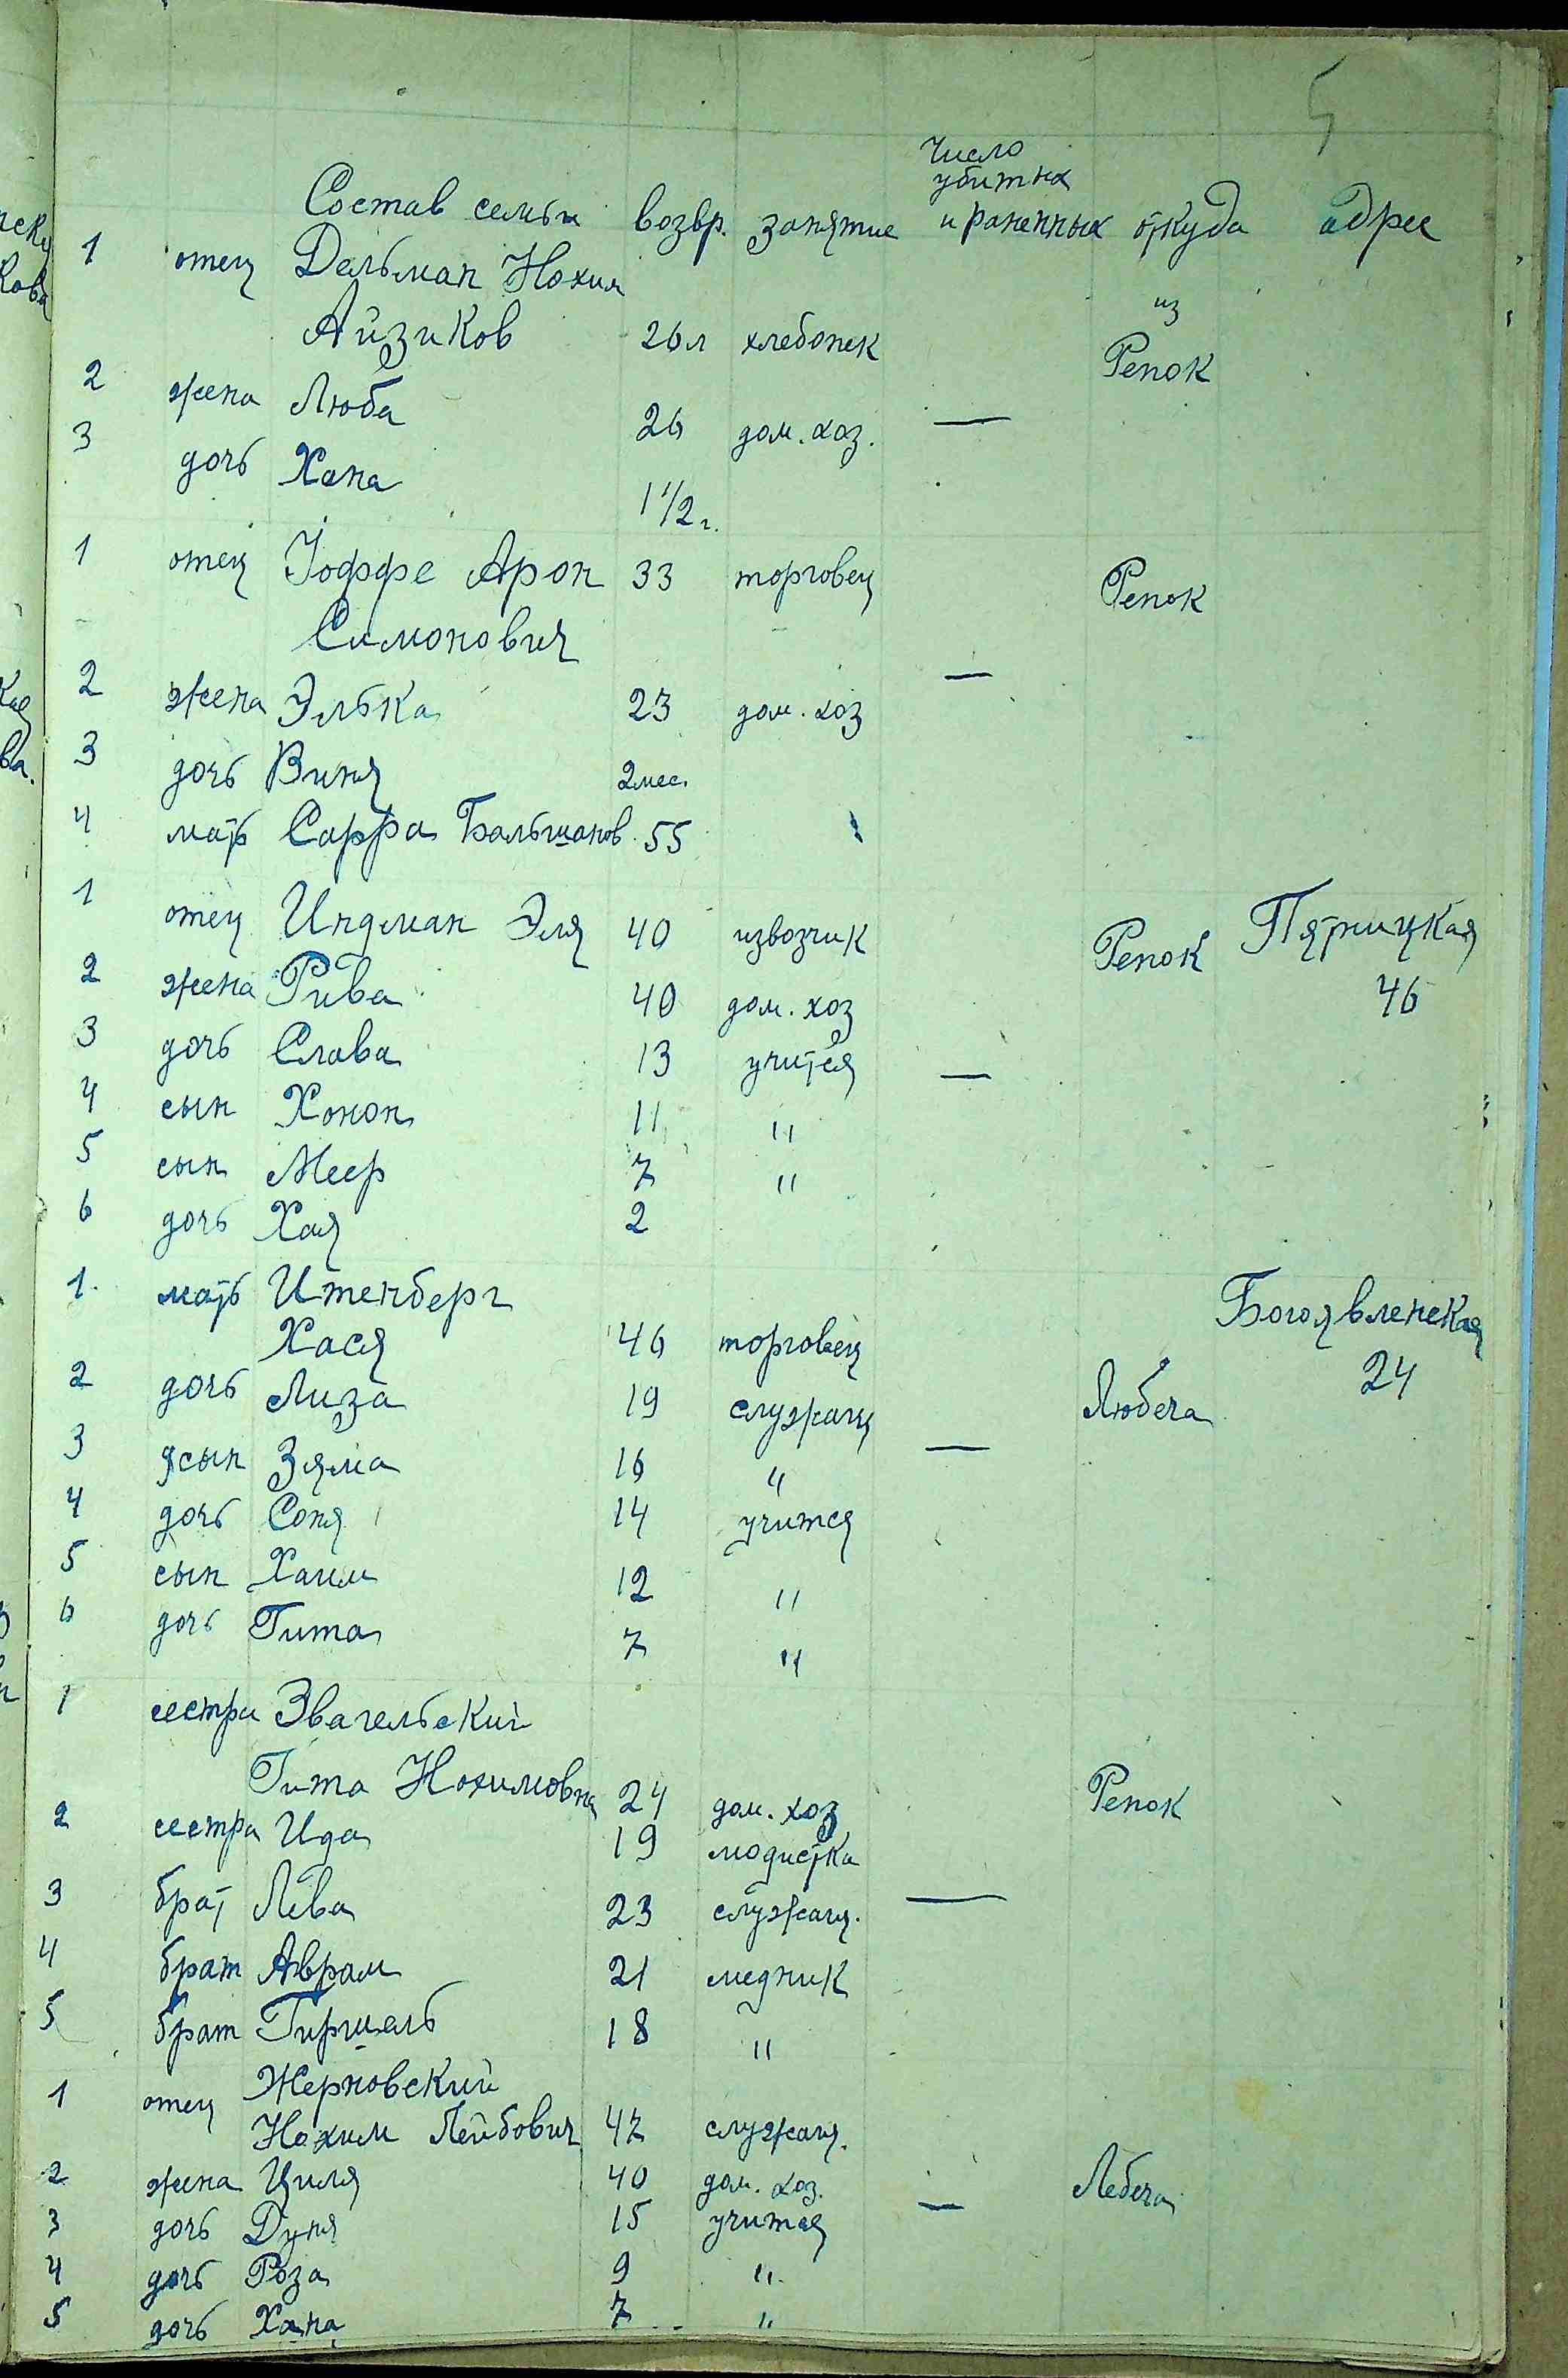 5
Число
убитых
Состав семьи возвр. занятие и раненных откуда адрес
1 отец Дельман Нохим
из
Айзиков 26л хлебопек Репок
2 жена Люба 26 дом. хоз. —
3 дочь Хана 1 1/2 г.
1 отец Іоффе Арон 33 торговец Репок
Симонович
2 жена Элька 23 дом. хоз —
3 дочь Виня 2 мес.
4 мать Сарра Бальшанов. 55
1 отец Индман Эля 40 извозчик Репок Пятницкая
2 жена Рива 40 дом. хоз 46
3 дочь Слава 13 учится —
4 сын Хонон 11 "
5 сын Меер 7 "
6 дочь Хая 2
1. мать Итенберг Богоявленская
Хася 46 торговец 24
2 дочь Лиза 19 служащ Любеча
3 сын Зяма 16 " —
4 дочь Соня 14 учится
5 сын Хаим 12 "
6 дочь Гита 7 "
1 сестра Звагельский
Гита Нохимовна 24 дом. хоз Репок
2 сестра Ида 19 модистка
3 брат Лева 23 служащ. —
4 брат Аврам 21 медник
5 брат Гиршель 18 "
1 отец Жерновский
Нохим Лейбович 47 служащ.
2 жена Циля 40 дом. хоз. — Лебеча
3 дочь Дуня 15 учится
4 дочь Роза 9 "
5 дочь Хана 7 "